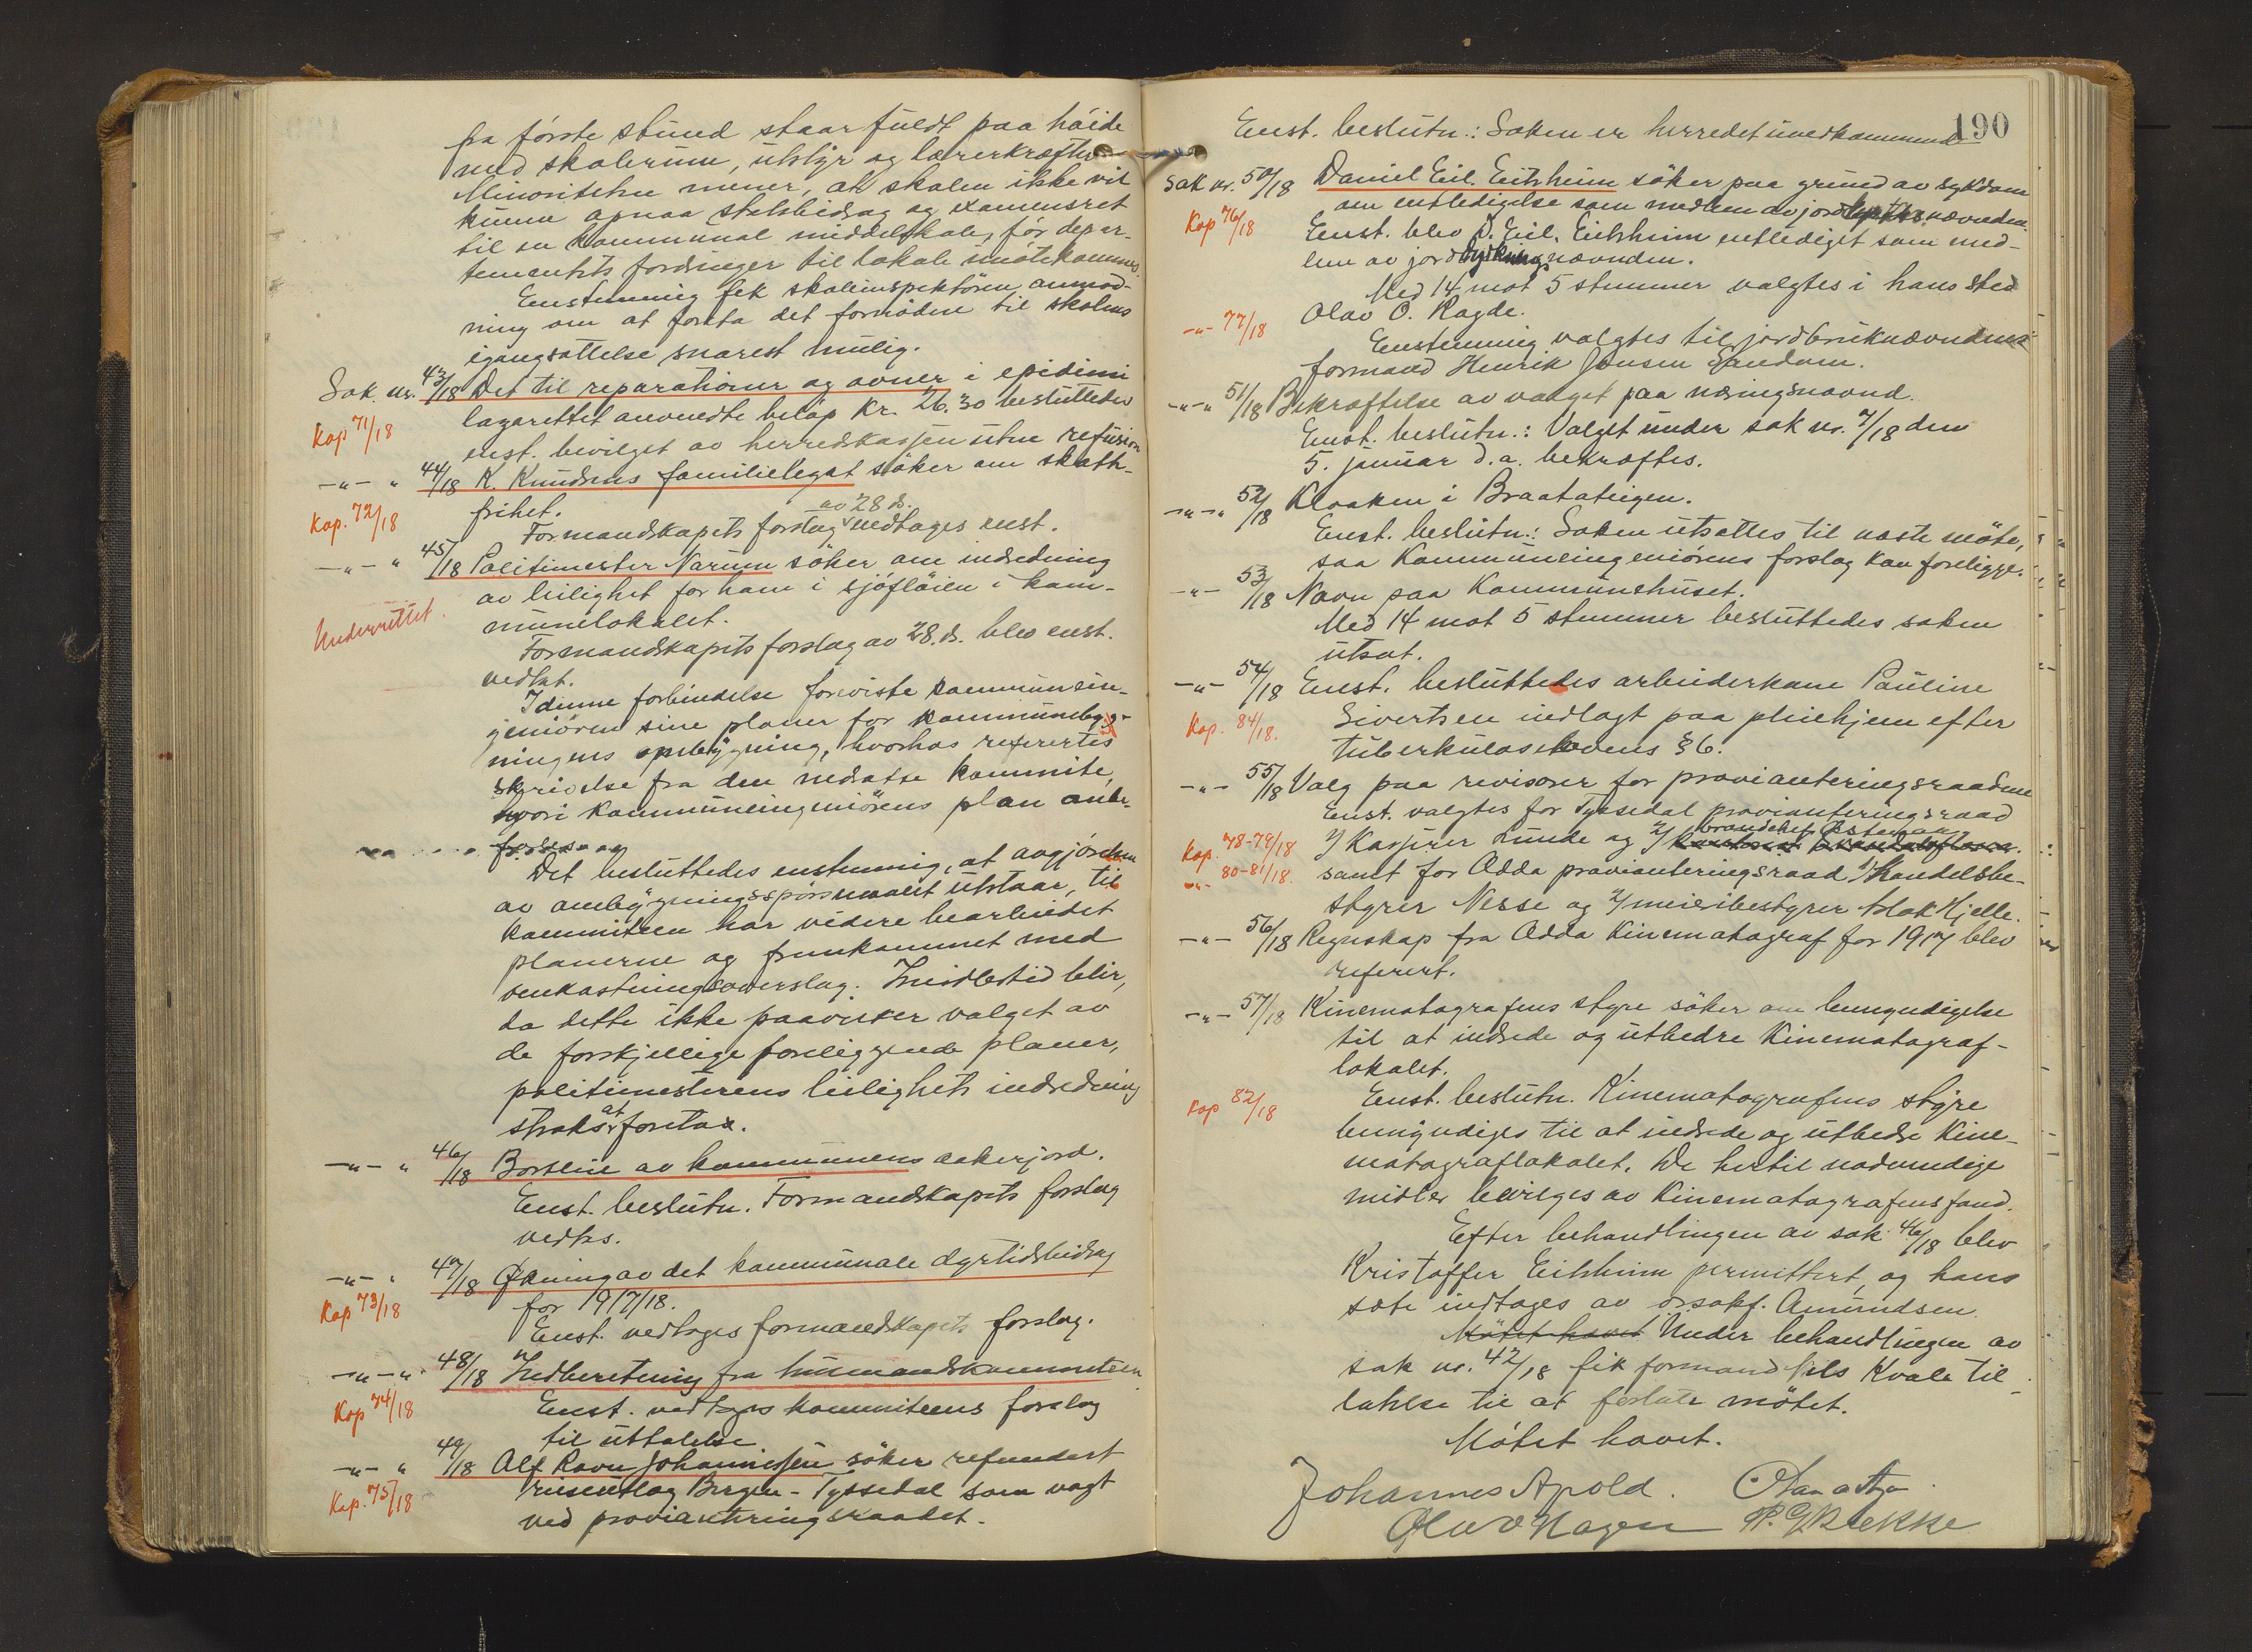 fra første stund staar fuldt paa høide
med skolerum, utstyr og lærerkræfter
Minoriteten mener, at skolen ikke vil
kunne opnaa statsbidrag og examensret
til en kommunal middelskole, før depar-
tementets fordringer til lokale imøtekommes.
Enstemmig fek skoleinspektøren anmod-
ning om at foreta det fornødne til skolens
igangsættelse snarest mulig.
Sak. nr. 43/18 Det til reparationer og ovner i epidemi
lazarettet anvendte beløp Kr. 26.30 besluttedes
Kop 71/18
enst. bevilget av herredskassen uten refusion
-"- " 44/18 K. Knudsens familielegat søker om skatte-
frihet.
Kop. 72/18
av 28 ds.
Formandskapets forslag vedtages enst.
-"- " 45/18 Politimester Narum søker om indredning
av leilighet for ham i sjøfløien i kom-
munelokalet.
Underrettet.
Formandskapets forslag av 28. ds. blev enst.
vedtat.
I denne forbindelse foreviste kommunein-
geniøren sine planer for kommunebyg-
ningens opbygning, hvorhos refereres
skrivelse fra den nedsatte kommite,
hvori kommuneingeniørens plan anbe-
Det besluttedes enstemmig, at avgjørelsen
av ombygningsspørsmaalet utstaar, til
kommiteen har videre bearbeidet
planerne og fremkommet med
omkostningsoverslag. Imidlertid blir,
da dette ikke paavirker valget av
de forskjellige foreliggende planer,
politimesterens leilighets indredning
straks at foreta.
-"- " 46/18 Bortleie av kommunens akerjord.
Enst. beslutn. Formandskapets forslag
vedtas.
-"- " 47/18 Økning av det kommunale dyrtidsbidrag
for 1917/18.
Kop 73/18
Enst. vedtages formandskapets forslag.
-"-" 48/18 Indberetning fra husmandskommiteen
Kop 74/18
Enst. vedtages kommiteens forslag
til uttalelse
-"- " 49/18 Alf Ravn Johannessen søker refundert
reiseutlæg Bergen - Tyssedal som vagt
Kop. 75/18
ved provianteringsraadet.
190
Enst. beslutn.: Saken er herredet uvedkommende
Sak nr. 50/18 Daniel Eil. Eitrheim søker paa grund av sykdom
om entledigelse som medlem av jord nævnden.
Kop 76/18
Enst. blev D. Eil. Eitrheim entlediget som med-
lem av jorddyrkningsnævnden.
Med 14 mot 5 stemmer valgtes i hans sted
Olav O. Ragde.
-"- 77/18
Enstemmig valgtes til jordbruknævndens
formand Henrik Jensen Sandven.
-"-" 51/18 Bekræftelse av valget paa næringsnævnd.
Enst. beslutn.: Valget under sak nr. 7/18 den
5. januar d.a. bekræftes.
-"-" 52/18 Kloaken i Braatateigen.
Enst. beslutn.: Saken utsættes til næste møte,
saa Kommuneingeniørens forslag kan foreligge.
-"- 53/18 Navn paa Kommunehuset.
Med 14 mot 5 stemmer besluttedes saken
utsat.
-"- 54/18 Enst. besluttedes arbeiderkone Pauline
Sivertsen indlagt paa pleiehjem efter
Kop. 84/18.
tuberkuloselovens § 6.
-"- 55/18 Valg paa revisorer for provianteringsraadene
Enst. valgtes for Tyssedal provianteringsraad
brandchef
Kop. 78-79/18
1/ Kasserer Lunde og 2/
-"- 80-81/18.
samt for Odda provianteringsraad 1/ Handelsbe-
styrer Nesse og 2/ meieribestyrer Aslak Hjelle.
-"- 56/18 Regnskap fra Odda Kinematograf for 1917 blev
referert.
-"- 57/18 Kinematografens styre søker om bemyndigelse
til at indrede og utbedre Kinematograf-
lokalet.
Kop 82/18
Enst. beslutn. Kinematografens styre
bemyndiges til at indrede og utbedre Kine-
matograflokalet. De hertil nødvendige
midler bevilges av Kinematografens fond.
Efter behandlingen av sak 46/18 blev
Kristoffer Eitrheim permittert, og hans
sæte indtages av o.r.sakf. Amundsen.
Møtet hævet Under behandlingen av
sak nr. 42/18 fik formand Nils Kvale til-
latelse til at forlate møtet.
Møtet hævet.
Johannes Apold.
Olav O Hagen